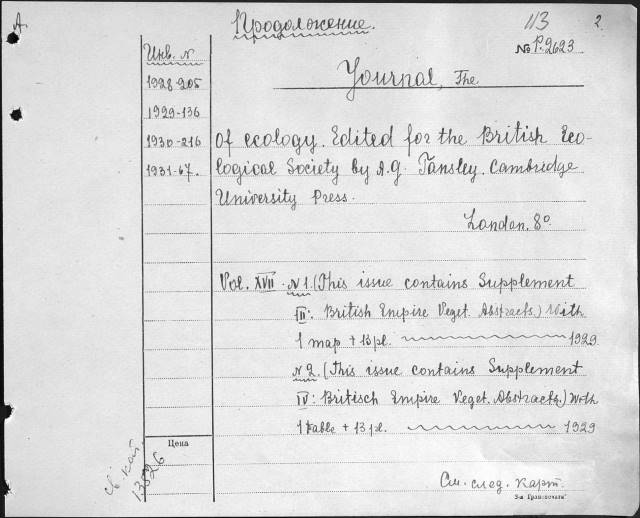 А
Продолжение.
113
2.
№ P.2623
Инв. N
1928-205
1929-136
1930-216
1931-67.
Yournal, The
of ecology. Edited for the British Eco-
logical Society by A.G. Tansley. Cambridge
University Press.
London. 8º
Vol. XVII. N 1. (This issue contains Supplement
III: British Empire Veget. Abstracts.) With
1 map + 13 pl. 1929
N 2. (This issue contains Supplement
IV: Britisch Empire Veget. Abstracts.) With
1 table + 13 pl. 1929
Цена
13826
См. след. карт.